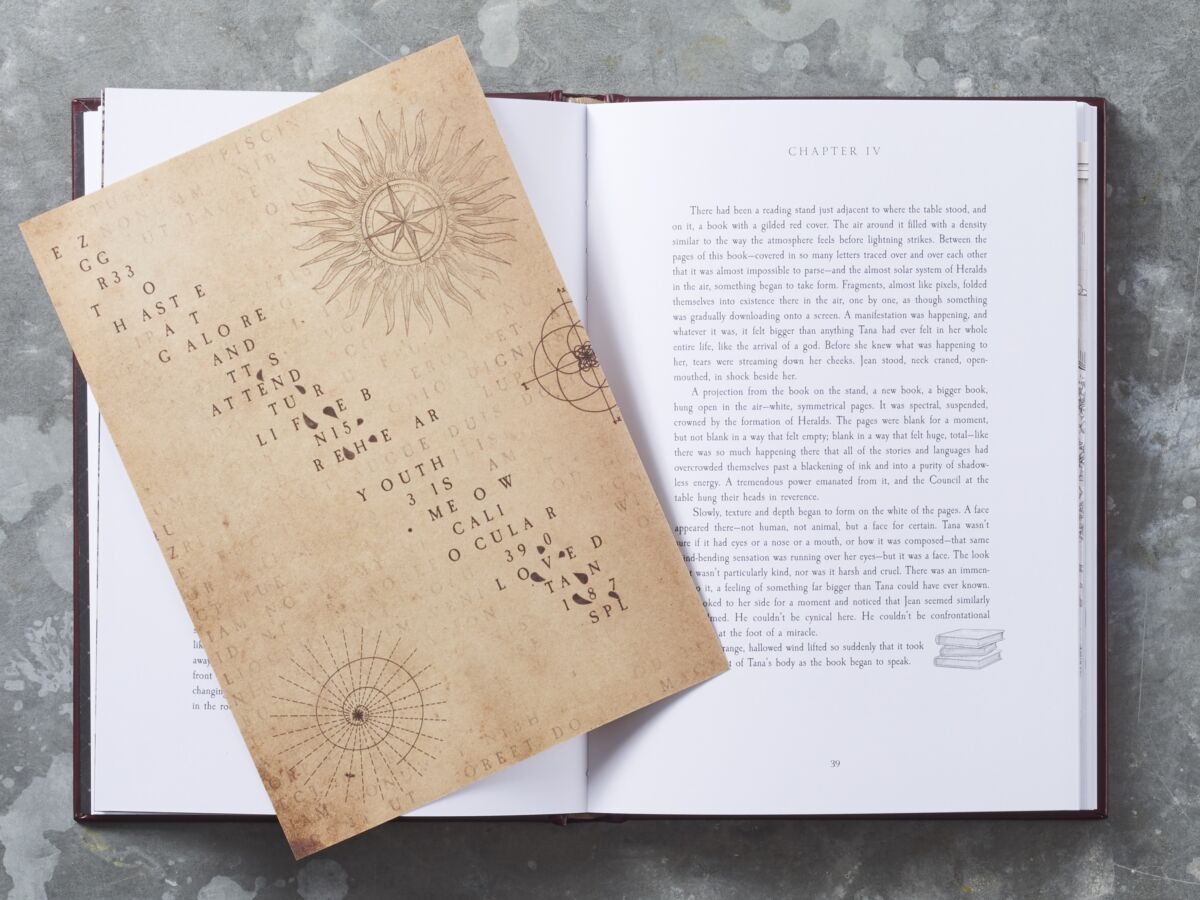 E Z
GG
R33
T O
H ASTE
A T
GALORE
AND
TT S
ATTEND
TU R
LI F E B
NI5
REHE AR
YOUTH
3 IS
MEOW
CALI
OCULAR
39 0
LOVED
TAN
187
SPL
away
front
changing
in the ro
CHAPTER IV
There had been a reading stand just adjacent to where the table stood, and
on it, a book with a gilded red cover. The air around it filled with a density
similar to the way the atmosphere feels before lightning strikes. Between the
pages of this book—covered in so many letters traced over and over each other
that it was almost impossible to parse—and the almost solar system of Heralds
in the air, something began to take form. Fragments, almost like pixels, folded
themselves into existence there in the air, one by one, as though something
was gradually downloading onto a screen. A manifestation was happening, and
whatever it was, it felt bigger than anything Tana had ever felt in her whole
entire life, like the arrival of a god. Before she knew what was happening to
her, tears were streaming down her cheeks. Jean stood, neck craned, open-
mouthed, in shock beside her.
A projection from the book on the stand, a new book, a bigger book,
hung open in the air—white, symmetrical pages. It was spectral, suspended,
crowned by the formation of Heralds. The pages were blank for a moment,
but not blank in a way that felt empty; blank in a way that felt huge, total—like
there was so much happening there that all of the stories and languages had
overcrowded themselves past a blackening of ink and into a purity of shadow-
less energy. A tremendous power emanated from it, and the Council at the
table hung their heads in reverence.
Slowly, texture and depth began to form on the white of the pages. A face
appeared there—not human, not animal, but a face for certain. Tana wasn't
ure if it had eyes or a nose or a mouth, or how it was composed—that same
ind-bending sensation was running over her eyes—but it was a face. The look
wasn't particularly kind, nor was it harsh and cruel. There was an immen-
o it, a feeling of something far bigger than Tana could have ever known.
oked to her side for a moment and noticed that Jean seemed similarly
lmed. He couldn't be cynical here. He couldn't be confrontational
at the foot of a miracle.
range, hallowed wind lifted so suddenly that it took
t of Tana's body as the book began to speak.
39